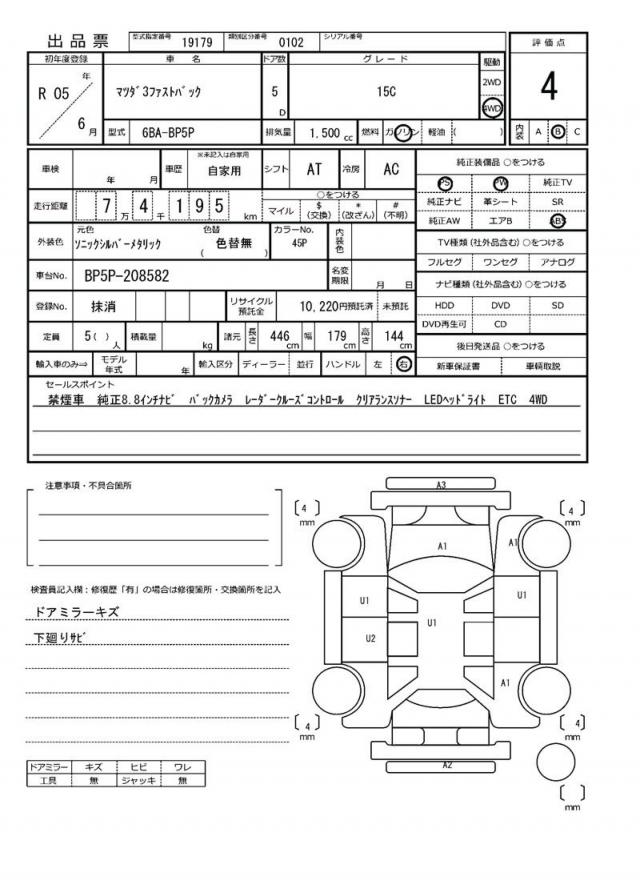 出品票 型式指定番号 19179 類別区分番号 0102 シリアル番号
初年度登録 車名 ドア数 グレード 駆動 評価点
R 05 年 6 月 マツダ3ファストバック 5 D 15C 2WD 4WD 4
型式 6BA-BP5P 排気量 1.500 cc 燃料 ガソリン 軽油 ( ) 内装 A B C
車検 年 月 車歴 ※未記入は自家用 自家用 シフト AT 冷房 AC 純正装備品 ○をつける
PS PW 純正TV
走行距離 7 万 4 千 1 9 5 km ○をつける マイル $ (交換) * (改ざん) # (不明) 純正ナビ 革シート SR
純正AW エアB ABS
外装色 元色 ソニックシルバーメタリック 色替 ( 色替無 ) カラーNo. 45P 内装色 TV種類 (社外品含む) ○をつける
フルセグ ワンセグ アナログ
車台No. BP5P-208582 名変期限 月 日 ナビ種類 (社外品含む) ○をつける
登録No. 抹消 リサイクル預託金 10,220円預託済 未預託 HDD DVD SD
DVD再生可 CD
定員 5( ) 人 積載量 kg 諸元 長さ 446 cm 幅 179 cm 高さ 144 cm 後日発送品 ○をつける
輸入車のみ⇒ モデル年式 年 輸入区分 ディーラー 並行 ハンドル 左 右 新車保証書 車輌取説
セールスポイント
禁煙車 純正8.8インチナビ バックカメラ レーダークルーズコントロール クリアランスソナー LEDヘッドライト ETC 4WD
注意事項・不具合箇所
検査員記入欄：修復歴「有」の場合は修復箇所・交換箇所を記入
ドアミラーキズ
下廻りサビ
ドアミラー キズ ヒビ ワレ
工具 無 ジャッキ 無
A3
[4] mm [4] mm
A1 A1
U1 U1
U2 U1
A1
[4] mm [4] mm
A2
[ ] mm